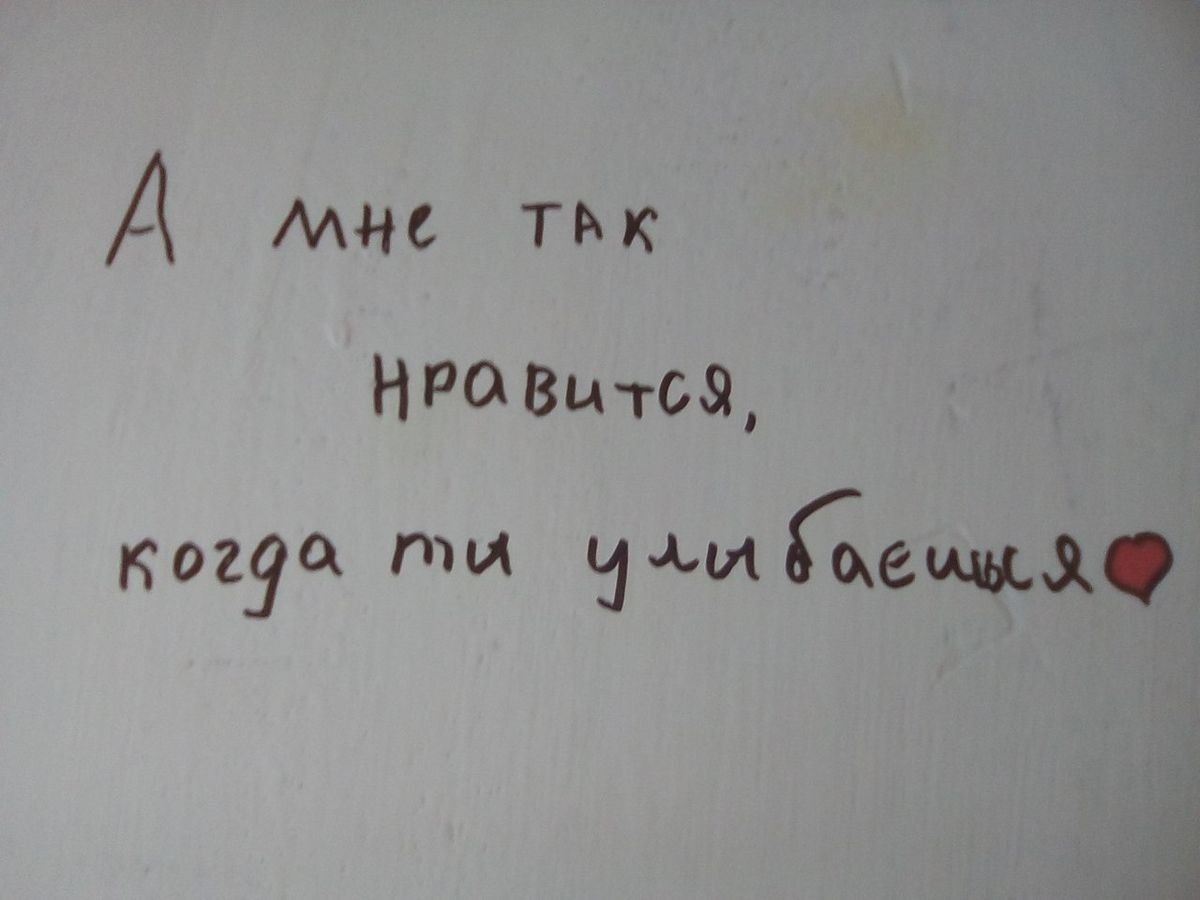 А мне так
нравится,
когда ты улыбаешься❤